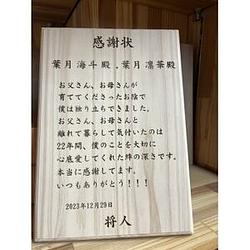 感謝状
葉月海斗殿．葉月凛華殿
お父さん、お母さんが
育ててくださったお陰で
僕は独り立ちできました。
お父さん、お母さんと
離れて暮らして気付いたのは
22年間、僕のことを大切に
心底愛してくれた絆の深さです。
本当に感謝してます。
いつもありがとう！！！
2023年12月29日
将人